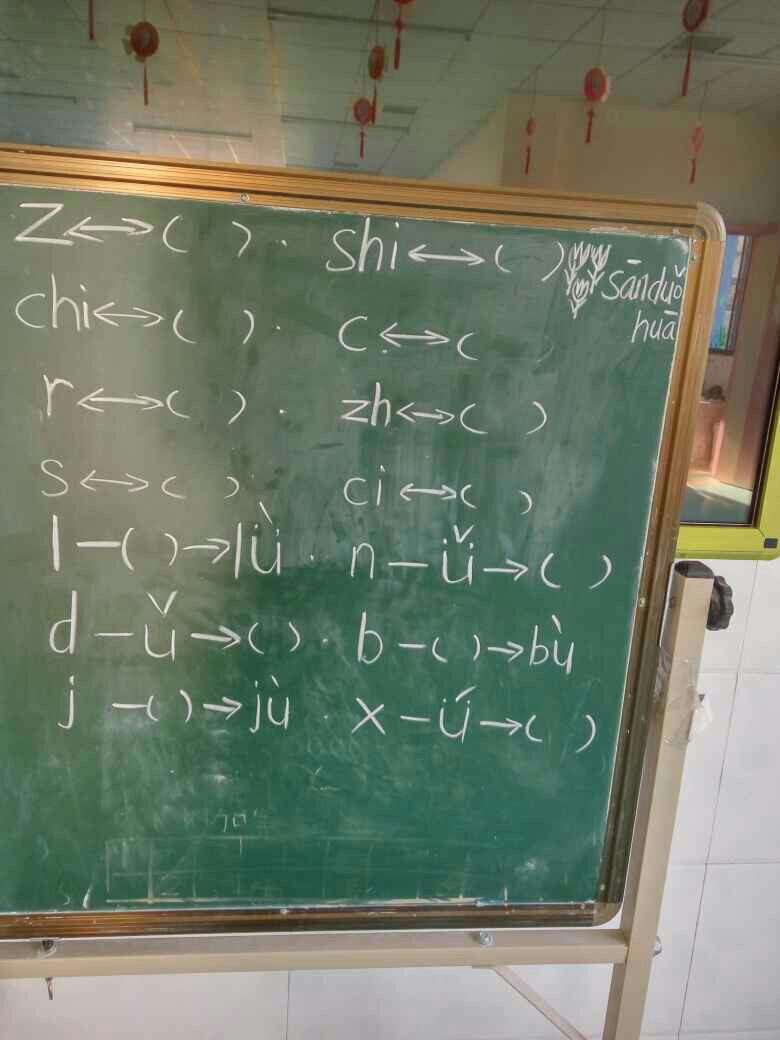 z↔( ). shi↔( ) sānduǒ
huā
chi↔( ). c↔( )
r↔( ). zh↔( )
s↔( ). ci↔( )
l—( )→lǜ. n—ǚ→( )
d—ǔ→( ). b—( )→bù
j—( )→jù. x—ǘ→( )